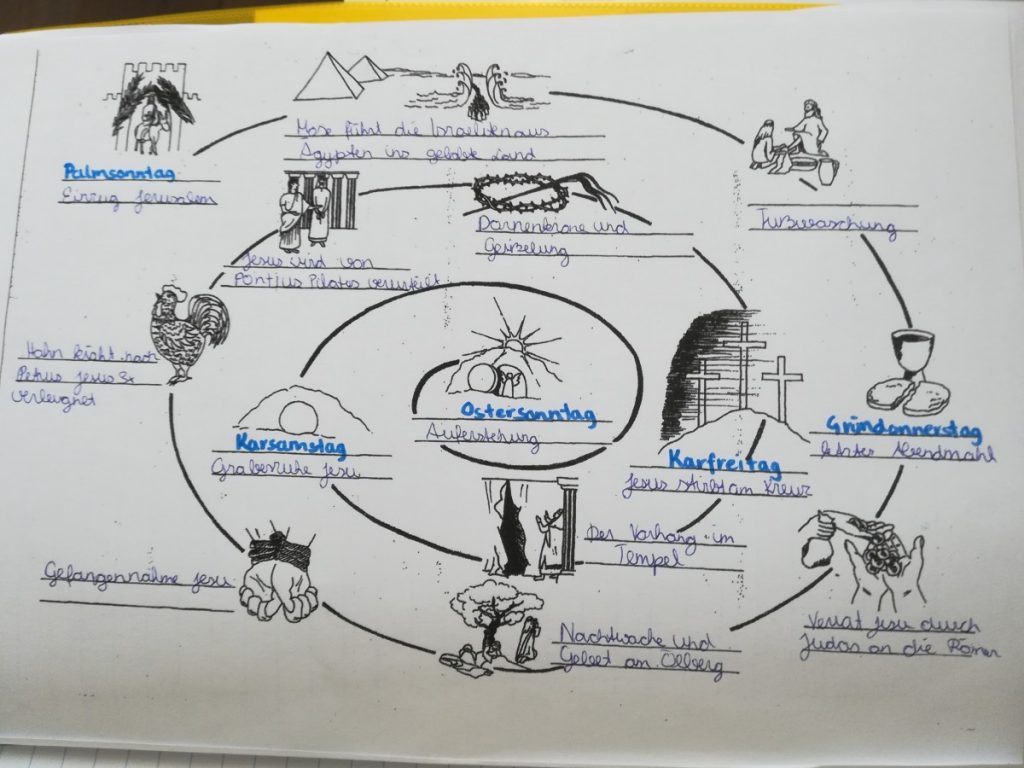 Palmsonntag
Einzug Jerusalem
Mose führt die Israeliten aus
Ägypten ins gelobte Land
Fußwaschung
Gründonnerstag
letztes Abendmahl
Verrat Jesu durch
Judas an die Römer
Nachtwache und
Gebet am Ölberg
Gefangennahme Jesu
Hahn kräht nach
Petrus Jesus 3x
verleugnet
Jesus wird von
Pontius Pilatus verurteilt
Dornenkrone und
Geißelung
Karfreitag
Jesus stirbt am Kreuz
Der Vorhang im
Tempel
Karsamstag
Grabesruhe Jesu
Ostersonntag
Auferstehung